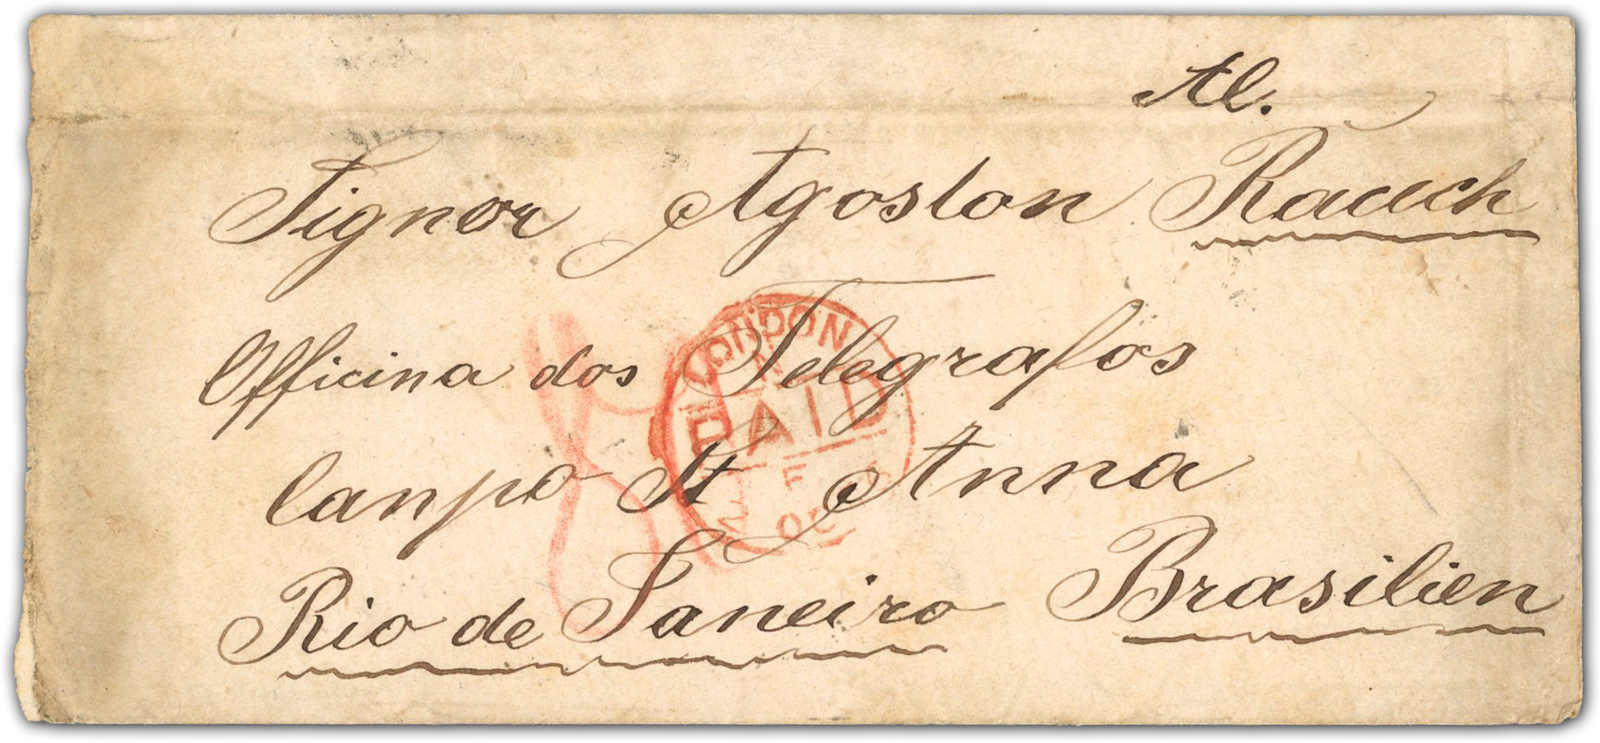 Al.
Signor Agoston Rauch
Officina dos Telegrafos
Canpo St Anna
Rio de Janeiro Brasilien
LONDON
PAID